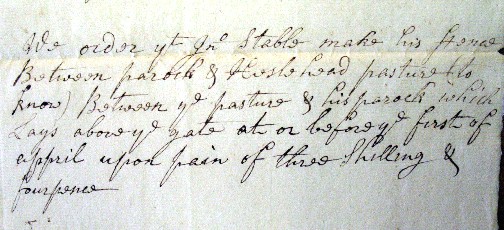 We order yt Jno Stable make his ffence
Between parock & Heslehead pasture (to
know) Between ye pasture & his parock which
Lays above ye gate at or before ye first of
april upon pain of three Shilling &
fourpence